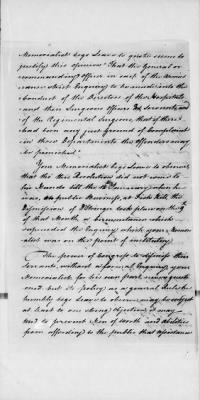 Memorialist begs Leave to quote seems to
justify this opinion "That the General or
commanding Officer in each of the Armies
cause strict Enquiry to be made into the
Conduct of the Directors of the Hospitals
and their Surgeons Officers & Servants and
of the Regimental Surgeons, that if there
had been any just ground of Complaint
in those Departments the offenders may
be punished"
Your Memorialist begs Leave to observe
that tho' this Resolution did not come to
his Hands till the of January when he
was, on public Business, at Fish Kill, his
Dismission of Stringer took place on the 9th
of that Month, a Circumstance which
superseded the Enquiry which your Memori-
alist was on the point of instituting
The power of Congress to dismiss their
Servants, without a formal Enquiry your
Memorialist for his own part never questi-
oned, but its policy as a general Rule he
humbly begs Leave to observe may be subject
at least to one strong objection, it may
tend to prevent Men of worth and abilities
from affording to the public that assistance